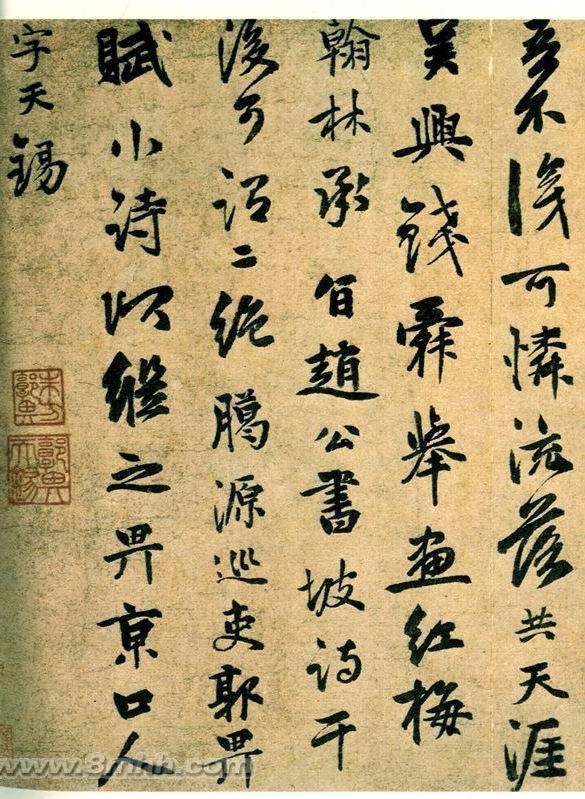 不可憐流落共天涯
吳興錢舜舉畫紅梅
翰林承旨趙公書坡詩于
後可謂二絕源巡吏郭畀
賦小詩以繼之畀京口人
字天錫
www.8mhh.com